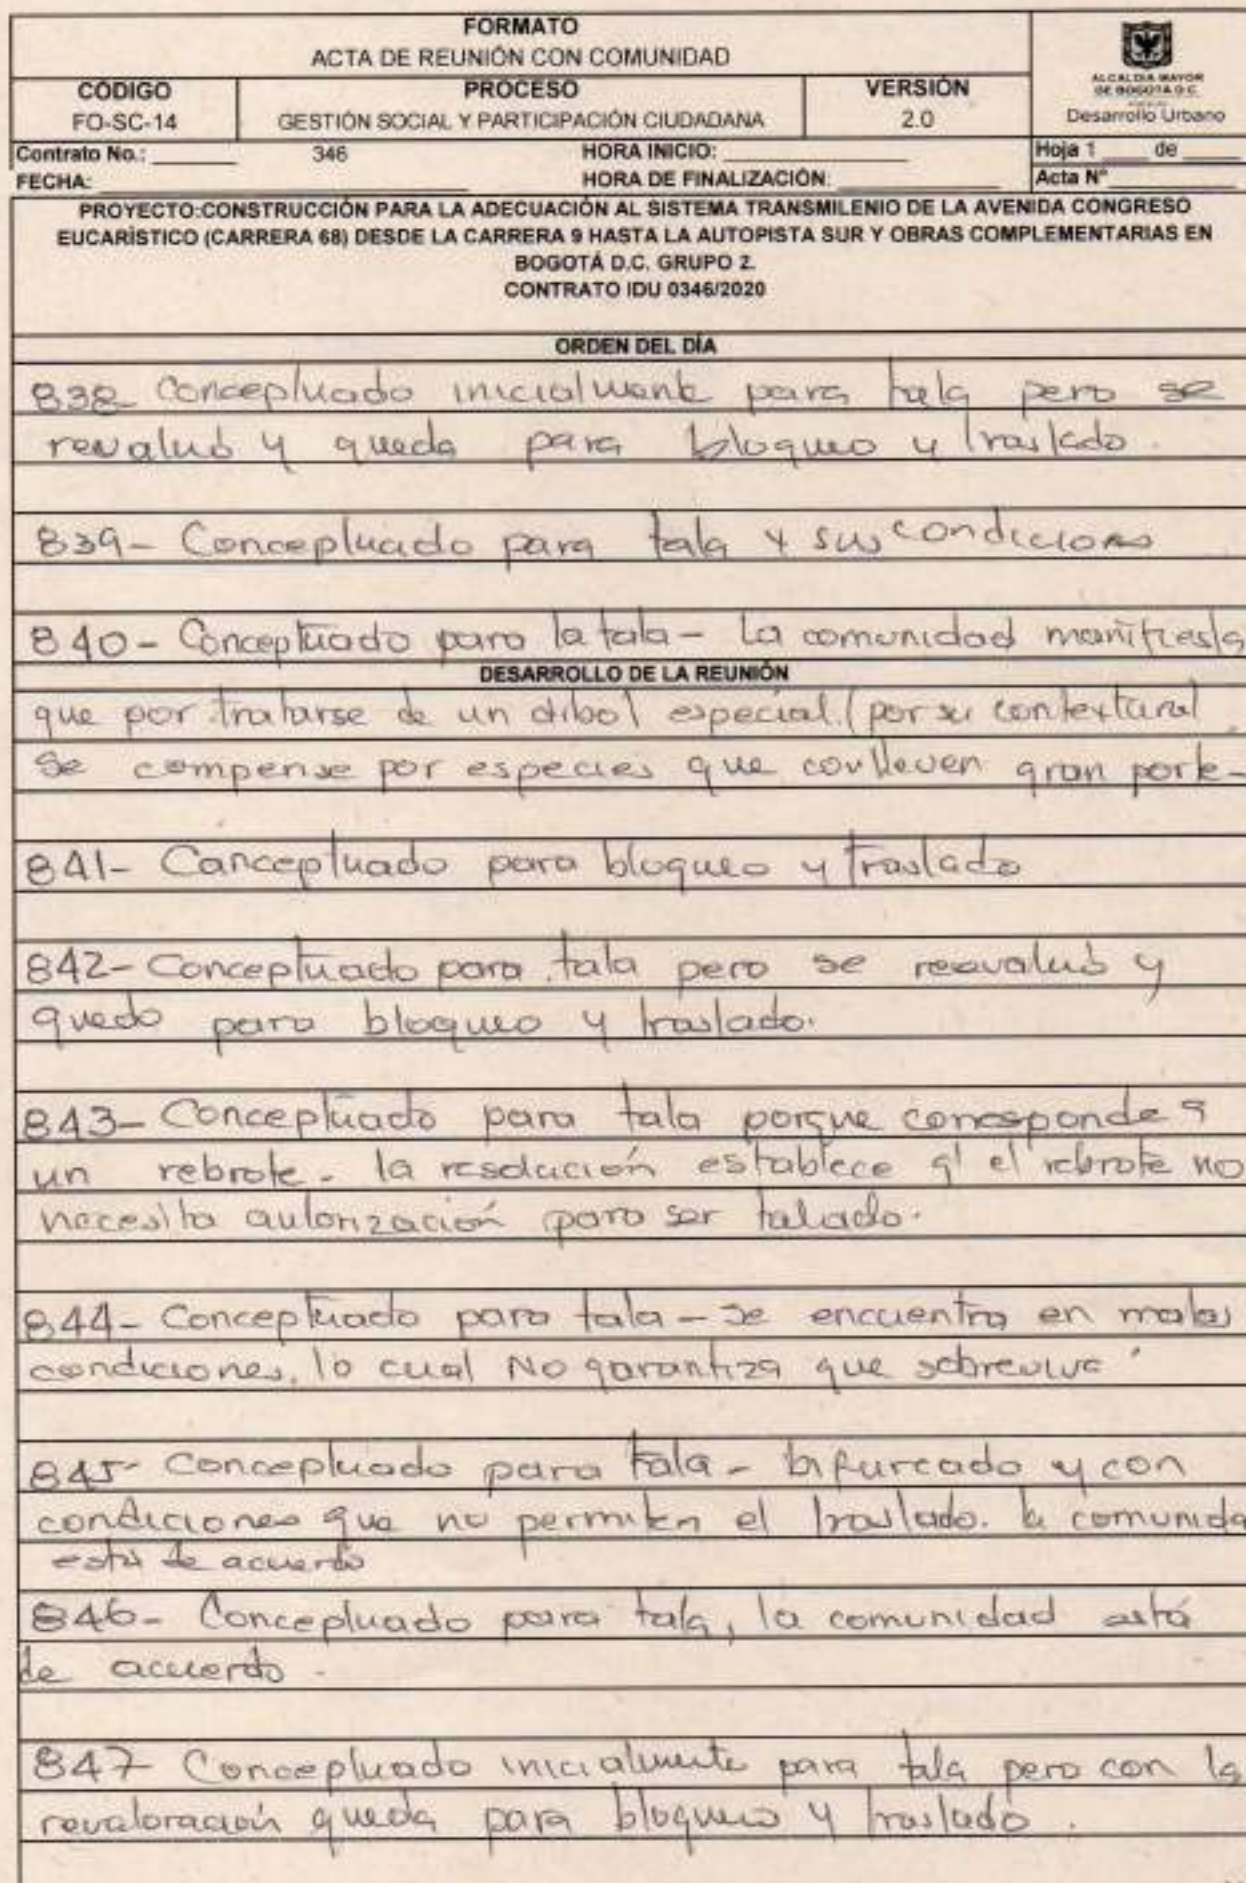 FORMATO
ACTA DE REUNIÓN CON COMUNIDAD
CÓDIGO
FO-SC-14
PROCESO
GESTIÓN SOCIAL Y PARTICIPACIÓN CIUDADANA
VERSIÓN
2.0
ALCALDIA MAYOR
DE BOGOTA D.C.
Desarrollo Urbano
Contrato No.: 346 HORA INICIO:
Hoja 1 de
FECHA: HORA DE FINALIZACIÓN:
Acta N°
PROYECTO:CONSTRUCCIÓN PARA LA ADECUACIÓN AL SISTEMA TRANSMILENIO DE LA AVENIDA CONGRESO
EUCARÍSTICO (CARRERA 68) DESDE LA CARRERA 9 HASTA LA AUTOPISTA SUR Y OBRAS COMPLEMENTARIAS EN
BOGOTÁ D.C. GRUPO 2.
CONTRATO IDU 0346/2020
ORDEN DEL DÍA
838- Conceptuado inicialmente para tala pero se
revaluó y queda para bloqueo y traslado.
839- Conceptuado para tala y sus condiciones
840- Conceptuado para la tala - La comunidad manifiesta
DESARROLLO DE LA REUNIÓN
que por tratarse de un árbol especial (por su contextura)
se compense por especies que conlleven gran porte-
841- Conceptuado para bloqueo y traslado
842- Conceptuado para tala pero se reevaluó y
quedo para bloqueo y traslado.
843- Conceptuado para tala porque corresponde a
un rebrote - la resolución establece q' el rebrote no
necesita autorización para ser talado.
844- Conceptuado para tala - se encuentra en malas
condiciones, lo cual No garantiza que sobreviva
845- Conceptuado para tala - bifurcado y con
condiciones que no permiten el traslado. la comunida
está de acuerdo
846- Conceptuado para tala, la comunidad está
de acuerdo -
847- Conceptuado inicialmente para tala pero con la
revaloración queda para bloqueo y traslado.